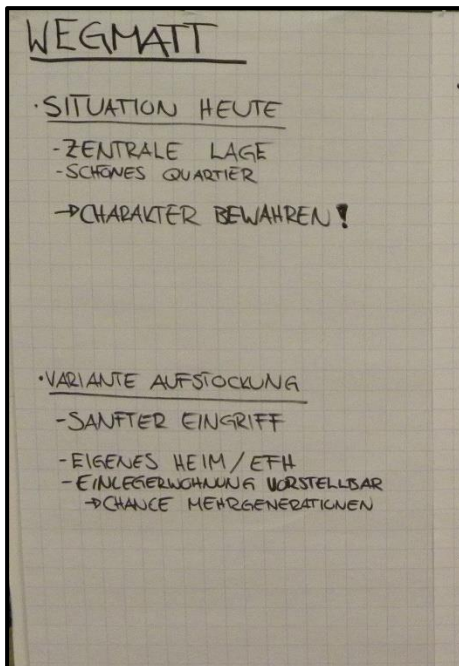 WEGMATT
· SITUATION HEUTE
- ZENTRALE LAGE
- SCHÖNES QUARTIER
→ CHARAKTER BEWAHREN!
· VARIANTE AUFSTOCKUNG
- SANFTER EINGRIFF
- EIGENES HEIM / EFH
- EINLEGERWOHNUNG VORSTELLBAR
→ CHANCE MEHRGENERATIONEN